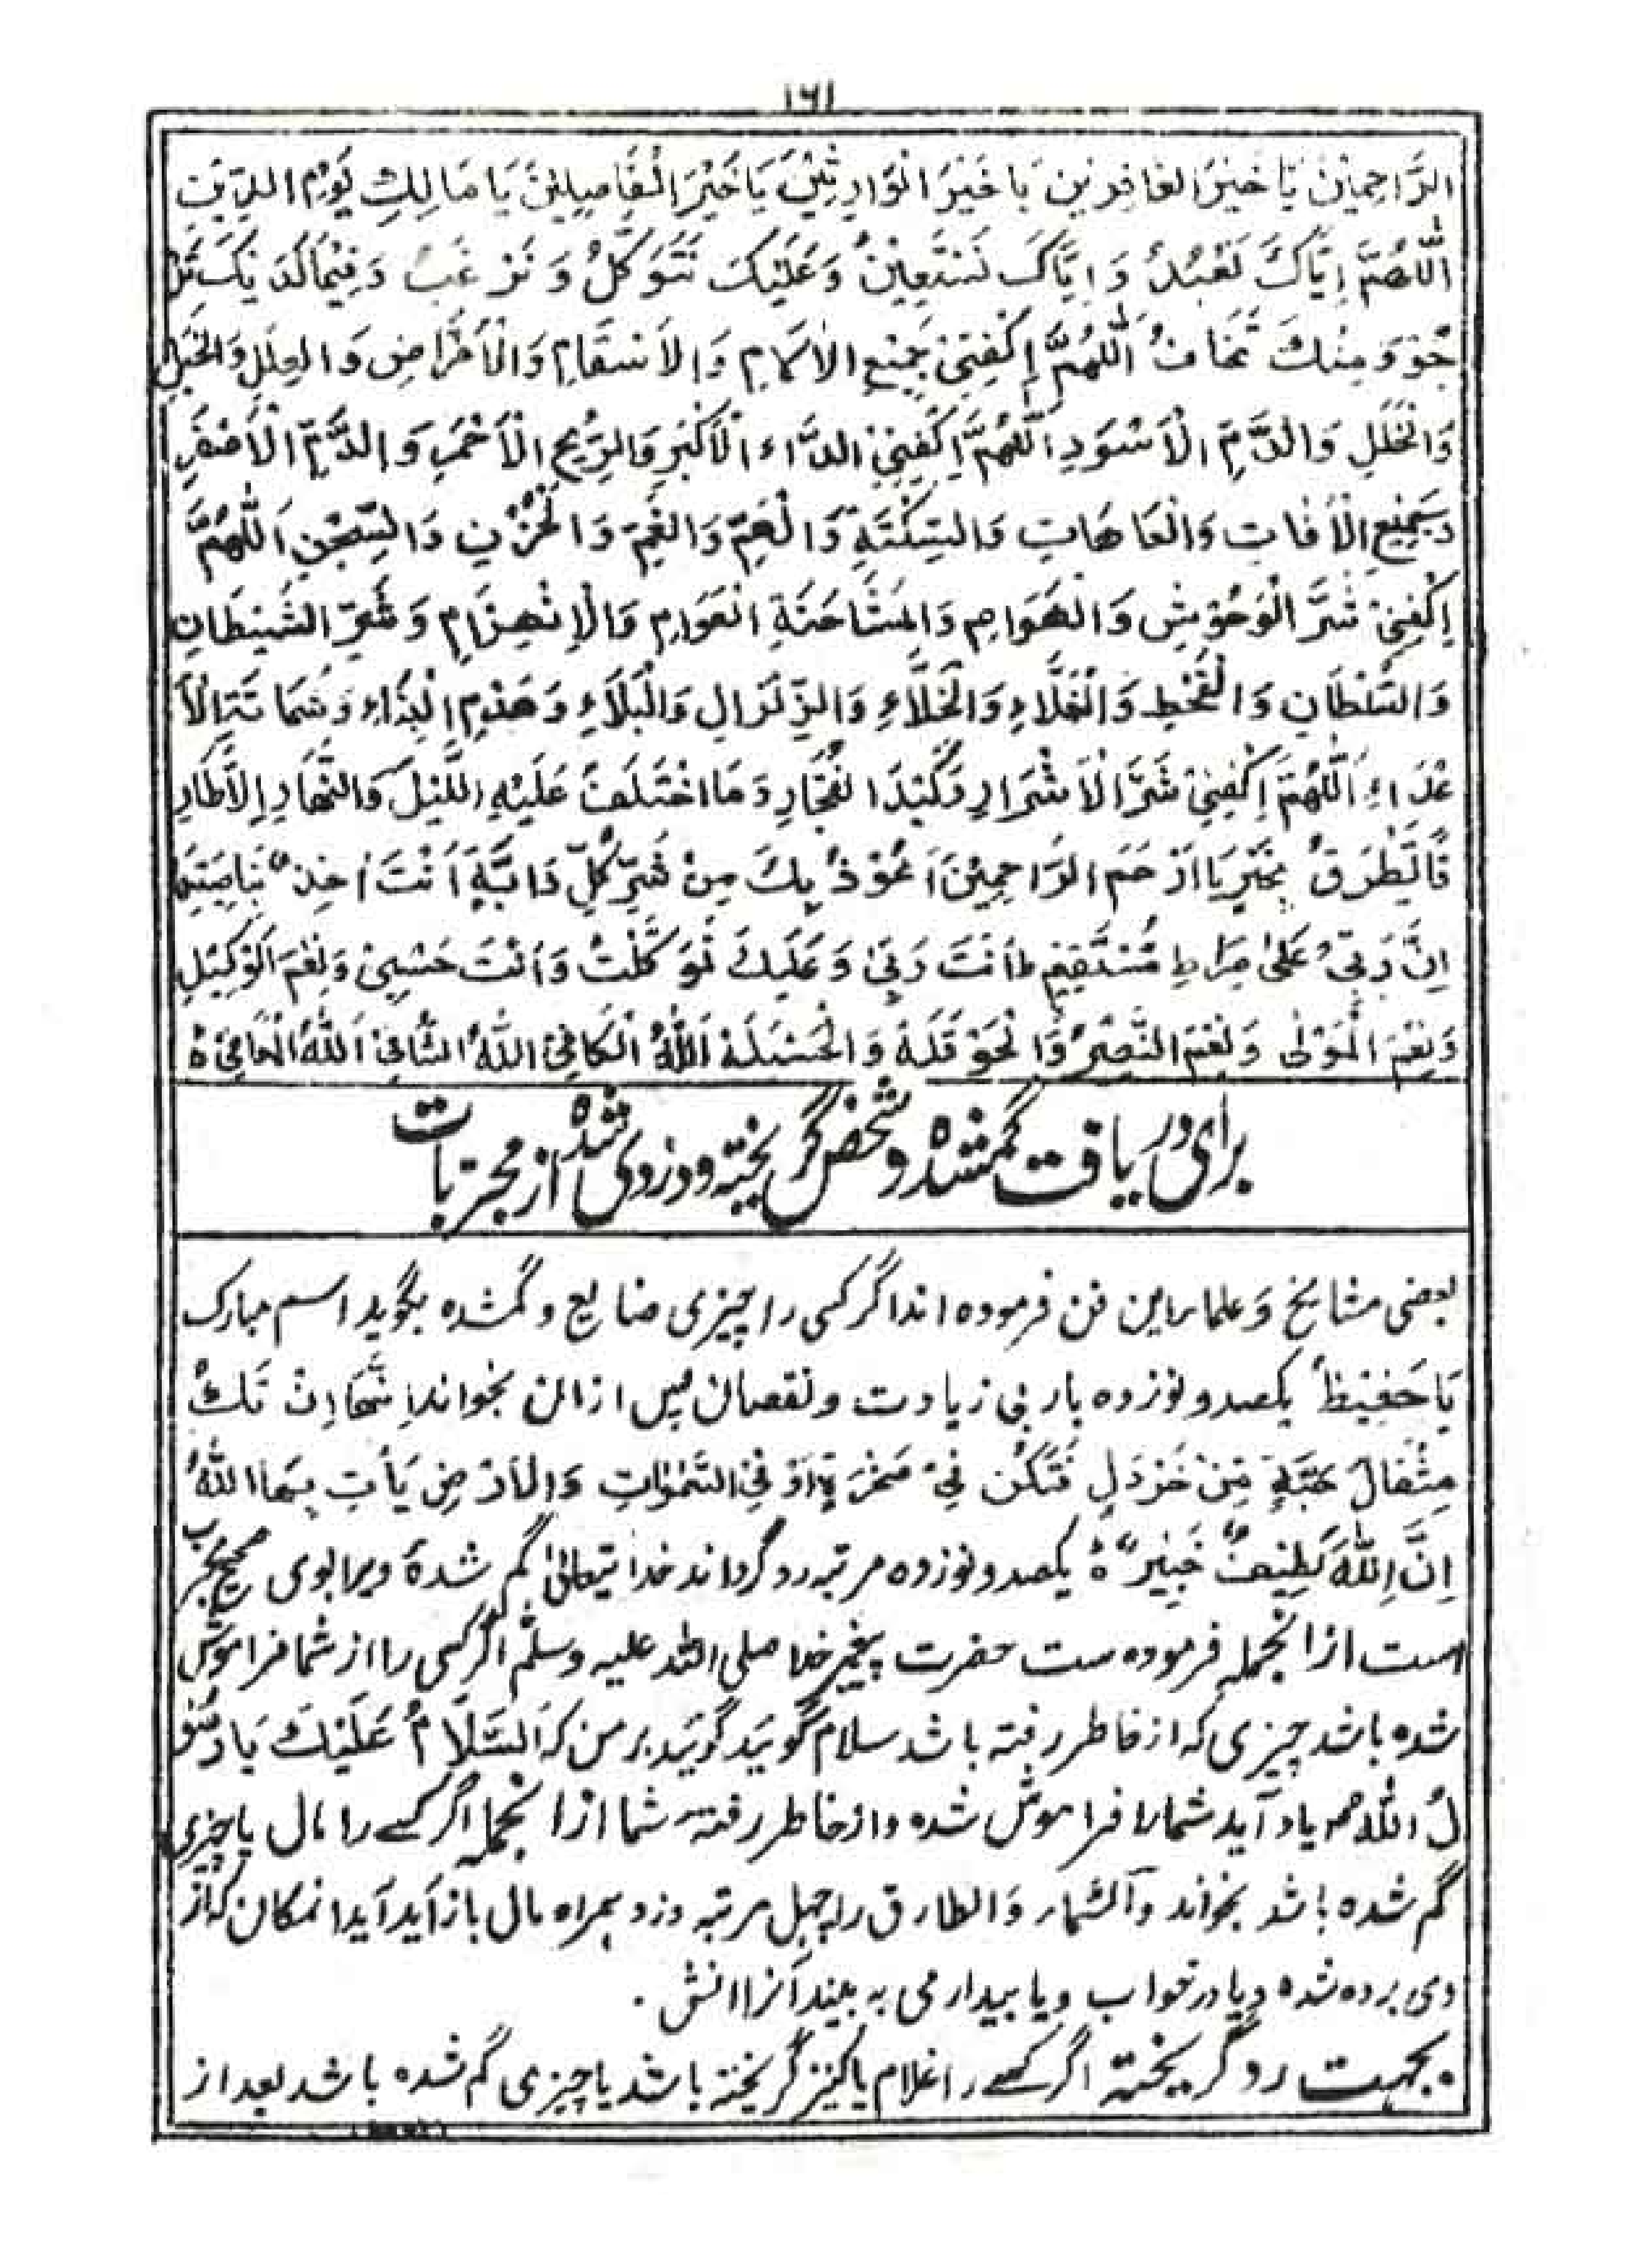 ۱۶۱
الرَّاحِمِيْنَ يَا خَيْرَ الغَافِرِينَ يَا خَيْرَ الْوَارِثِيْنَ يَا خَيْرَ الْفَاصِلِيْنَ يَا مَالِكِ يَوْمِ الدِّيْنِ
اَللّٰهُمَّ اِيَّاكَ نَعْبُدُ وَ اِيَّاكَ نَسْتَعِيْنُ وَعَلَيْكَ نَتَوَكَّلُ وَ نَرْغَبُ وَفِيْمَا لَدَيْكَ نَرْ
جُوْ وَمِنْكَ نَخَافُ اَللّٰهُمَّ اِكْفِنِيْ جَمِيْعِ الاٰلَامِ وَالاَسْقَامِ وَالْاَمْرَاضِ وَالعِلَلِ وَالْخَبَلِ
وَالْخَلَلِ وَالدَّمِّ الْاَسْوَدِ اَللّٰهُمَّ اِكْفِنِيْ الدَّاءِ الْاَكْبَرِ وَالرِّيْحِ الْاَحْمَرِ وَالدَّمِّ الْاَصْفَرِ
وَجَمِيْعِ الْاٰفَاتِ وَالْعَاهَاتِ وَالسَّكْتَةِ وَالْهَمِّ وَالْغَمِّ وَالْحُزْنِ وَالسِّجْنِ اَللّٰهُمَّ
اِكْفِنِيْ شَرَّ الْوَحُوْشِ وَالْهَوَامِ وَالْمُشَاحَنَةِ الْعَوَامِ وَالْاِنْهِزَامِ وَشَرِّ الشَّيْطَانِ
وَالسُّلْطَانِ وَالْقَحْطِ وَالْغَلَاءِ وَالْخَلَاءِ وَالزِّلْزَالِ وَالْبَلَاءِ وَهَدْمِ الْبِنَاءِ وَشَمَاتَةِ الْاَ
عْدَاءِ اَللّٰهُمَّ اِكْفِنِيْ شَرَّ الْاَشْرَارِ وَكَيْدَ الْفُجَّارِ وَمَا اخْتَلَفَ عَلَيْهِ اللَّيْلَ وَالنَّهَارِ اِلَّاطَارِ
قًا يَّطْرَقُ بِخَيْرٍ يَا اَرْحَمَ الرَّاحِمِيْنَ اَعُوْذُ بِكَ مِنْ شَرِّ كُلِّ دَابَّةٍ اَنْتَ اٰخِذٌ بِنَاصِيَتِهَا
اِنَّ رَبِّيْ عَلٰى صِرَاطٍ مُّسْتَقِيْمٍ ط اَنْتَ رَبِّيْ وَعَلَيْكَ تَوَكَّلْتُ وَاَنْتَ حَسْبِيْ وَنِعْمَ الْوَكِيْلِ
وَنِعْمَ الْمَوْلٰى وَنِعْمَ النَّصِيْرُ وَالْحَوْقَلَةَ وَالْحَسْبَلَةَ اَللّٰهُ الْكَافِيْ اَللّٰهُ الشَّافِيْ اَللّٰهُ الْمُعَافِيْ ہ
برای دریافت گمشدہ و شخص گریختہ و دزدی شدہ از مجربات
بعضی مشایخ و علما براین فن فرمودہ اند اگر کسی را چیزی ضایع و گمشدہ بگوید اسم مبارک
يَا حَفِيْظُ یکصد و نوزدہ بار بی زیادت و نقصان پس ازان بخواند اِنَّهَا اِنْ تَكُ
مِثْقَالَ حَبَّةٍ مِّنْ خَرْدَلٍ فَتَكُنْ فِيْ صَخْرَةٍ اَوْ فِي السَّمٰوٰتِ وَالْاَرْضِ يَأْتِ بِهَا اللّٰهُ
اِنَّ اللّٰهَ لَطِيْفٌ خَبِيْرٌ ہ یکصد و نوزدہ مرتبہ رد گرداند خدا یتعالٰی گم شدۂ ویرا بوی صحیح مجرب
است ازانجملہ فرمودہ ست حضرت پیغمبر خدا صلی اللہ علیہ وسلم اگر کسی را از شما فراموش
شدہ باشد چیزی کہ از خاطر رفتہ باشد سلام گوئید گوئید بر من کہ اَلسَّلَامُ عَلَيْكَ يَا رَسُوْ
لُ اللّٰه یاد آید شمارا فراموش شدہ و از خاطر رفتہ شما ازانجملہ اگر کسے را مال یا چیزی
گم شدہ باشد بخواند وَالسَّمَاءِ وَالطارق را چہل مرتبہ دزد ہمراہ مال باز آید آید ازمکان کہ از
وی بردہ شدہ و یا در خواب و یا بیدار می بہ بیند آنرا انش .
. بجہت رد گریختہ اگر کسے را غلام یا کنیز گریختہ باشد یا چیزی گم شدہ باشد بعد از